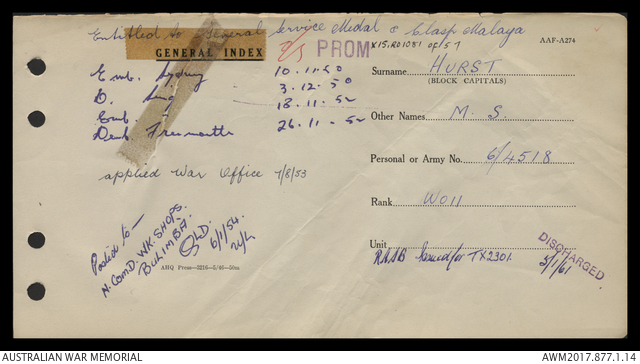 Entitled to General Service Medal & Clasp Malaya
GENERAL INDEX
PROM
X15.RO1081 of 57
AAF-A274
Emb. Sydney 10.11.50
D. Sing 3.12.50
Emb. 18.11.52
Demb Fremantle 26.11.52
Surname HURST
(BLOCK CAPITALS)
Other Names M. S.
Personal or Army No. 6/4518
Rank WOII
applied War Office 7/8/53
Posted to —
N. ComD. WK. SHOPS.
BULIMBA. QLD.
6/1/54.
AHQ Press—5216—5/46—50m
Unit
RAAB Issued for TX2301.
DISCHARGED
5/1/61
AUSTRALIAN WAR MEMORIAL
AWM2017.877.1.14